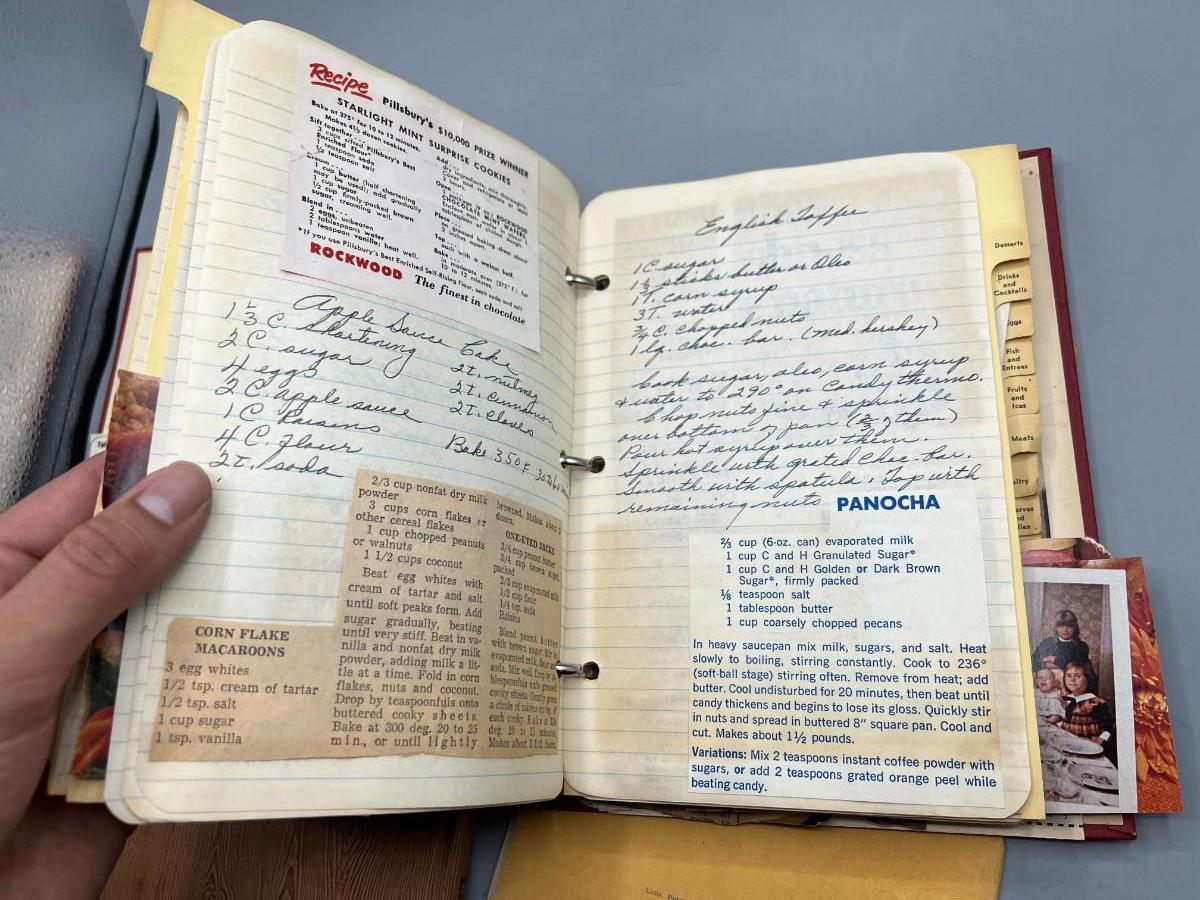 Recipe
Pillsbury's $10,000 PRIZE WINNER
STARLIGHT MINT SURPRISE COOKIES
Bake at 375° for 10 to 12 minutes.
Makes 4½ dozen cookies.
Sift together...
3 cups sifted Pillsbury's Best
Enriched Flour*
1 teaspoon soda
½ teaspoon salt
Cream...
1 cup butter (half shortening
may be used); add gradually
1 cup sugar
½ cup firmly-packed brown
sugar, creaming well.
Blend in...
2 eggs, unbeaten
2 tablespoons water
1 teaspoon vanilla; beat well.
Add...
dry ingredients; mix thoroughly.
Cover and refrigerate at least
2 hours.
Open...
ROCKWOOD
CHOCOLATE MINT WAFERS
Place
2 inches apart.
Top...
each with a walnut half.
Bake...
in moderate oven (375° F.) for
10 to 12 minutes.
*If you use Pillsbury's Best Enriched Self-Rising Flour, omit soda and salt
ROCKWOOD The finest in chocolate
Apple Sauce Cake
1 1/3 C. shortening
2 C. sugar
4 eggs
2 C. apple sauce
1 C raisins
4 C. flour
2 t. soda
2 t. nutmeg
2 t. cinnamon
2 t. cloves
Bake 350F
CORN FLAKE
MACAROONS
3 egg whites
1/2 tsp. cream of tartar
1/2 tsp. salt
1 cup sugar
1 tsp. vanilla
2/3 cup nonfat dry milk
powder
3 cups corn flakes or
other cereal flakes
1 cup chopped peanuts
or walnuts
1 1/2 cups coconut
Beat egg whites with
cream of tartar and salt
until soft peaks form. Add
sugar gradually, beating
until very stiff. Beat in va-
nilla and nonfat dry milk
powder, adding milk a lit-
tle at a time. Fold in corn
flakes, nuts and coconut.
Drop by teaspoonfuls onto
buttered cooky sheets.
Bake at 300 deg. 20 to 25
min., or until lightly
browned. Makes about
dozen.
ONE-EYED JACKS
3/4 cup peanut butter
3/4 cup brown sugar,
packed
2/3 cup evaporated milk
1/2 cup flour
1/4 tsp. soda
Raisins
Blend peanut butter
with brown sugar.
evaporated milk, flour
soda. Mix well. Drop by
teaspoonfuls onto greased
cooky sheets. Gently press
a circle of raisins on top of
each cooky. Bake at
deg. 20 to 25 minutes.
Makes about 1 1/2 dozen.
English Toffee
1 C. sugar
1 1/2 sticks butter or Oleo
1 T. corn syrup
3 T. water
3/4 C. chopped nuts
1 lg. choc. bar. (med. hershey)
Cook sugar, oleo, corn syrup
& water to 290° on Candy thermo.
Chop nuts fine & sprinkle
over bottom of pan (2/3 of them)
Pour hot syrup over them.
Sprinkle with grated choc. bar.
Smooth with spatula. Top with
remaining nuts
PANOCHA
⅔ cup (6-oz. can) evaporated milk
1 cup C and H Granulated Sugar*
1 cup C and H Golden or Dark Brown
Sugar*, firmly packed
⅛ teaspoon salt
1 tablespoon butter
1 cup coarsely chopped pecans
In heavy saucepan mix milk, sugars, and salt. Heat
slowly to boiling, stirring constantly. Cook to 236°
(soft-ball stage) stirring often. Remove from heat; add
butter. Cool undisturbed for 20 minutes, then beat until
candy thickens and begins to lose its gloss. Quickly stir
in nuts and spread in buttered 8" square pan. Cool and
cut. Makes about 1½ pounds.
Variations: Mix 2 teaspoons instant coffee powder with
sugars, or add 2 teaspoons grated orange peel while
beating candy.
Desserts
Drinks
and
Cocktails
Eggs
Fish
and
Entrees
Fruits
and
Ices
Meats